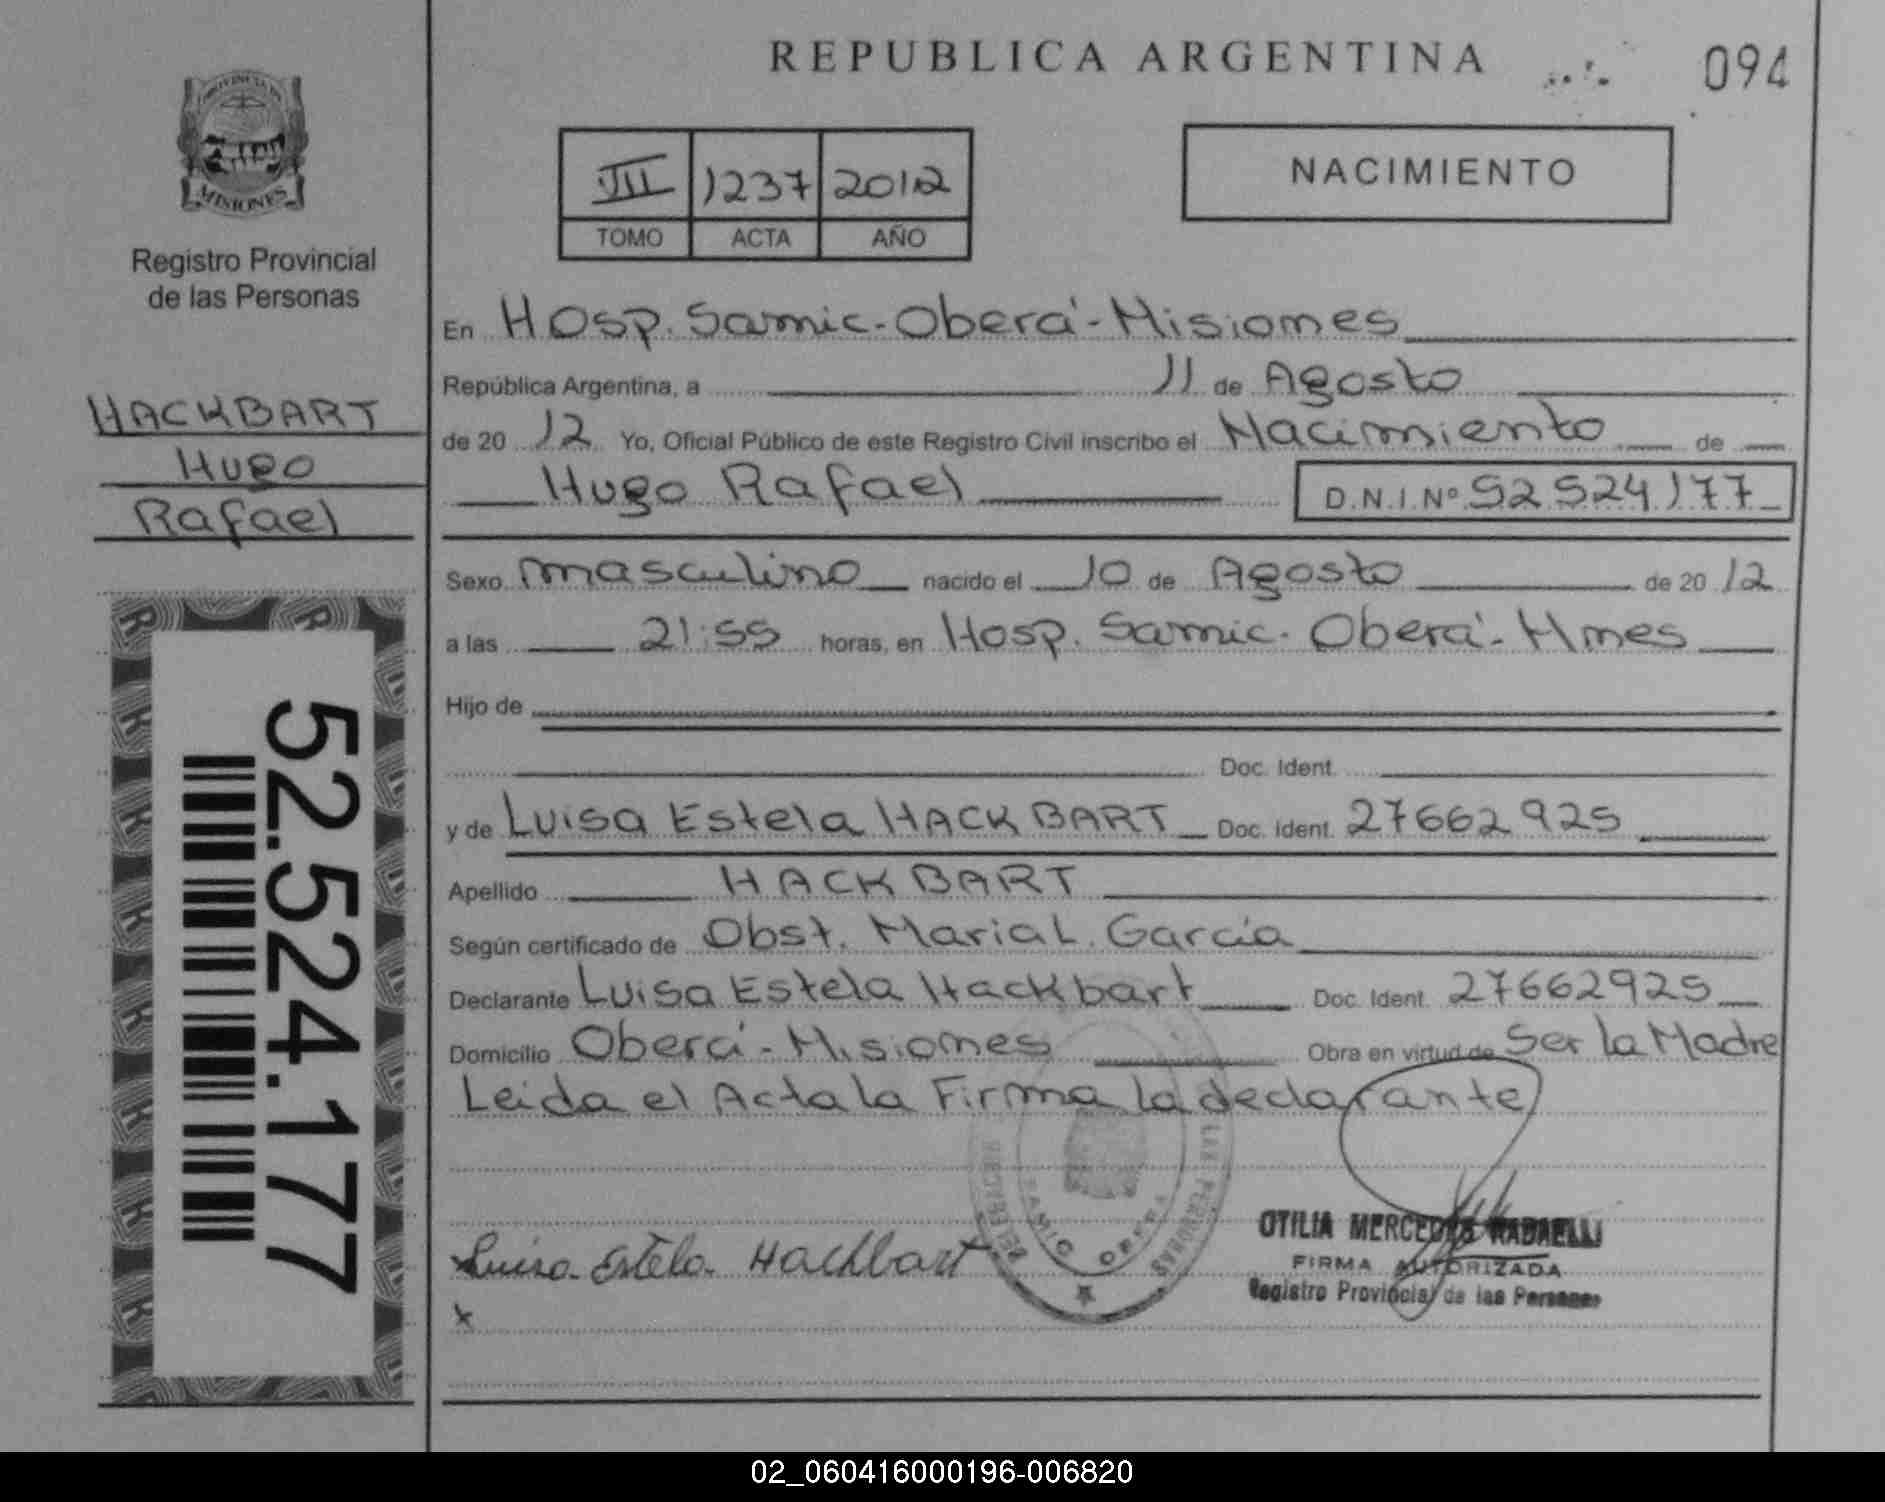 REPUBLICA ARGENTINA
094
PROVINCIA DE
MISIONES
Registro Provincial
de las Personas
HACKBART
Hugo
Rafael
52.524.177
VII 1237 2012
TOMO ACTA AÑO
NACIMIENTO
En Hosp. Samic - Oberá - Misiones
República Argentina, a 11 de Agosto
de 20 12 Yo, Oficial Público de este Registro Civil inscribo el Nacimiento de
Hugo Rafael D.N.I. Nº 52524177
Sexo masculino nacido el 10 de Agosto de 20 12
a las 21:55 horas, en Hosp. Samic - Oberá - Mnes
Hijo de
Doc. Ident.
y de Luisa Estela HACKBART Doc. Ident. 27662925
Apellido HACKBART
Según certificado de Obst. Maria L. García
Declarante Luisa Estela Hackbart Doc. Ident. 27662925
Domicilio Oberá - Misiones Obra en virtud de Ser la Madre
Leida el Acta la Firma la declarante
Luisa Estela Hackbart
x
OTILIA MERCEDES
FIRMA AUTORIZADA
Registro Provincial de las Personas
02_060416000196-006820